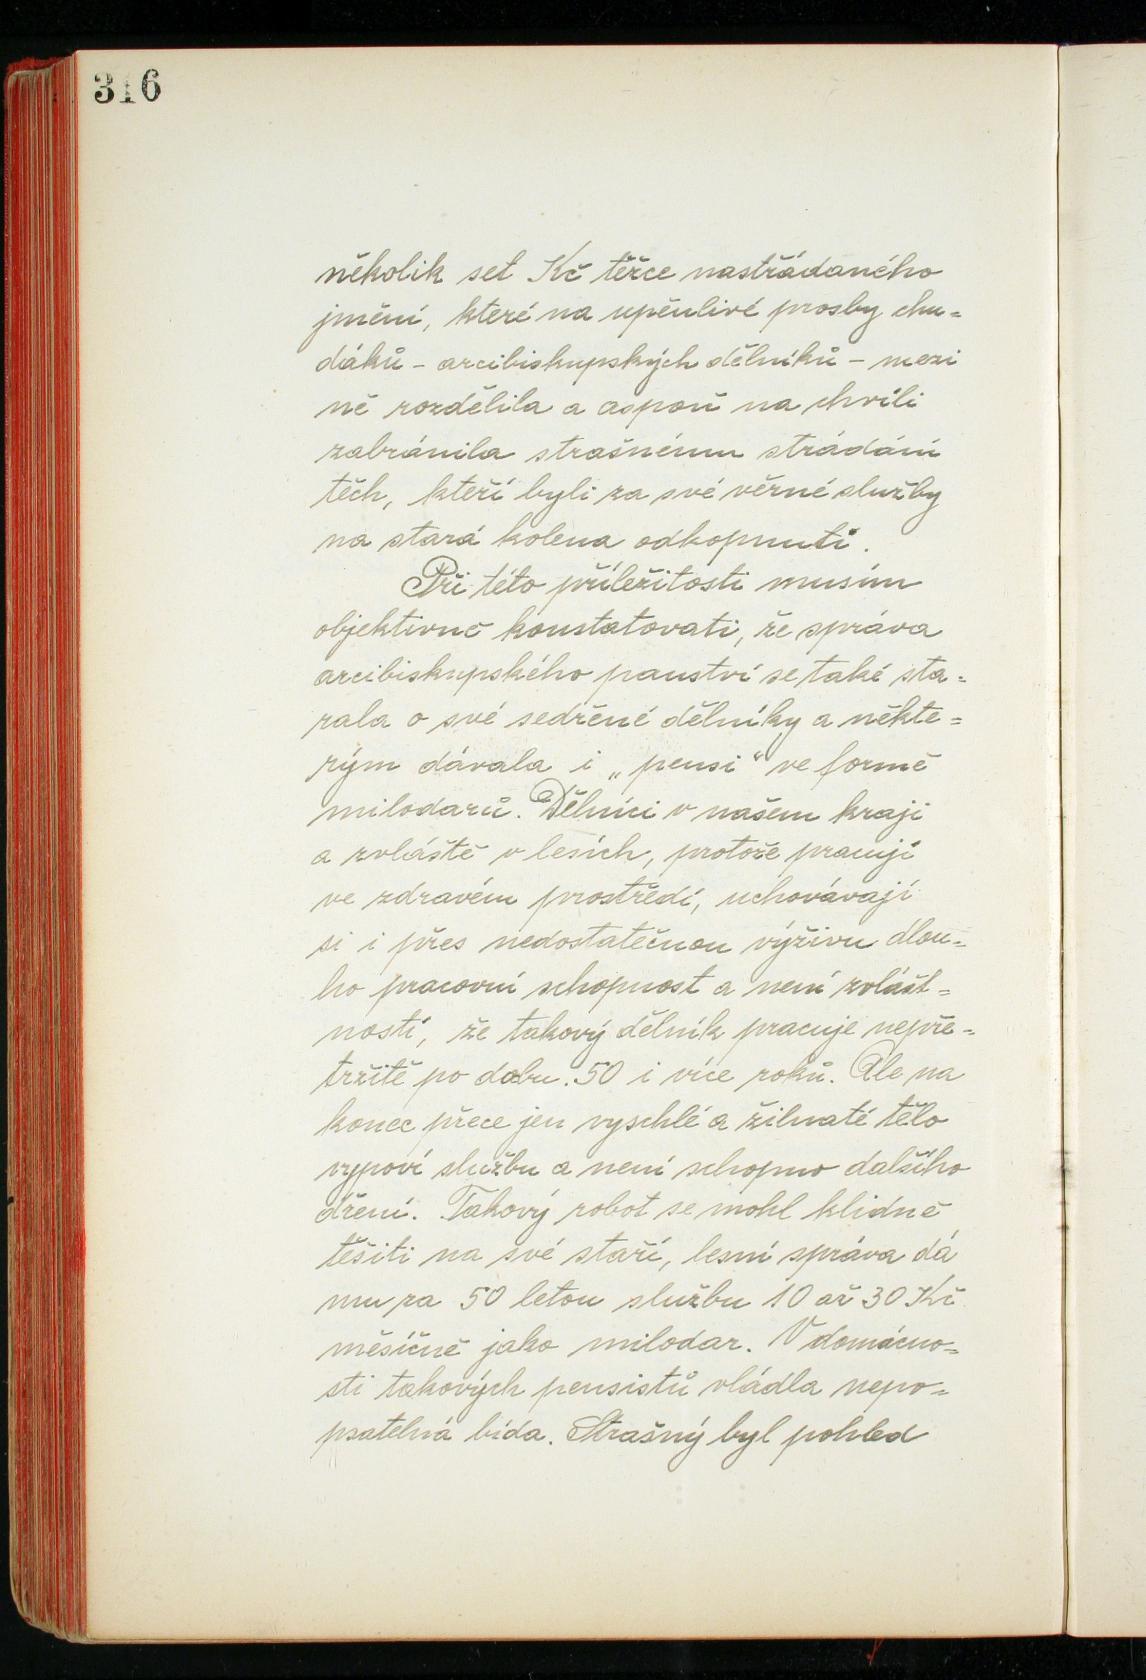 316
několik set Kč těžce nastřádaného
jmění, které na upěnlivé prosby chu=
dáků - arcibiskupských dělníků - mezi
ně rozdělila a aspoň na chvíli
zabránila strašnému strádání
těch, kteří byli za své věrné služby
na stará kolena odkopnuti.
Při této příležitosti musím
objektivně konstatovati, že správa
arcibiskupského panství se také sta=
rala o své sedřené dělníky a někte=
rým dávala i „pensi“ ve formě
milodarů. Dělníci v našem kraji
a zvláště v lesích, protože pracují
ve zdravém prostředí, uchovávají
si i přes nedostatečnou výživu dlou=
ho pracovní schopnost a není zvlášt=
ností, že takový dělník pracuje nepře=
tržitě po dobu 50 i více roků. Ale na
konec přece jen vyschlé a žilnaté tělo
vypoví službu a není schopno dalšího
dření. Takový robot se mohl klidně
těšiti na své staří, lesní správa dá
mu za 50 letou službu 10 až 30 Kč
měsíčně jako milodar. V domácno=
sti takových pensistů vládla nepo=
psatelná bída. Strašný byl pohled